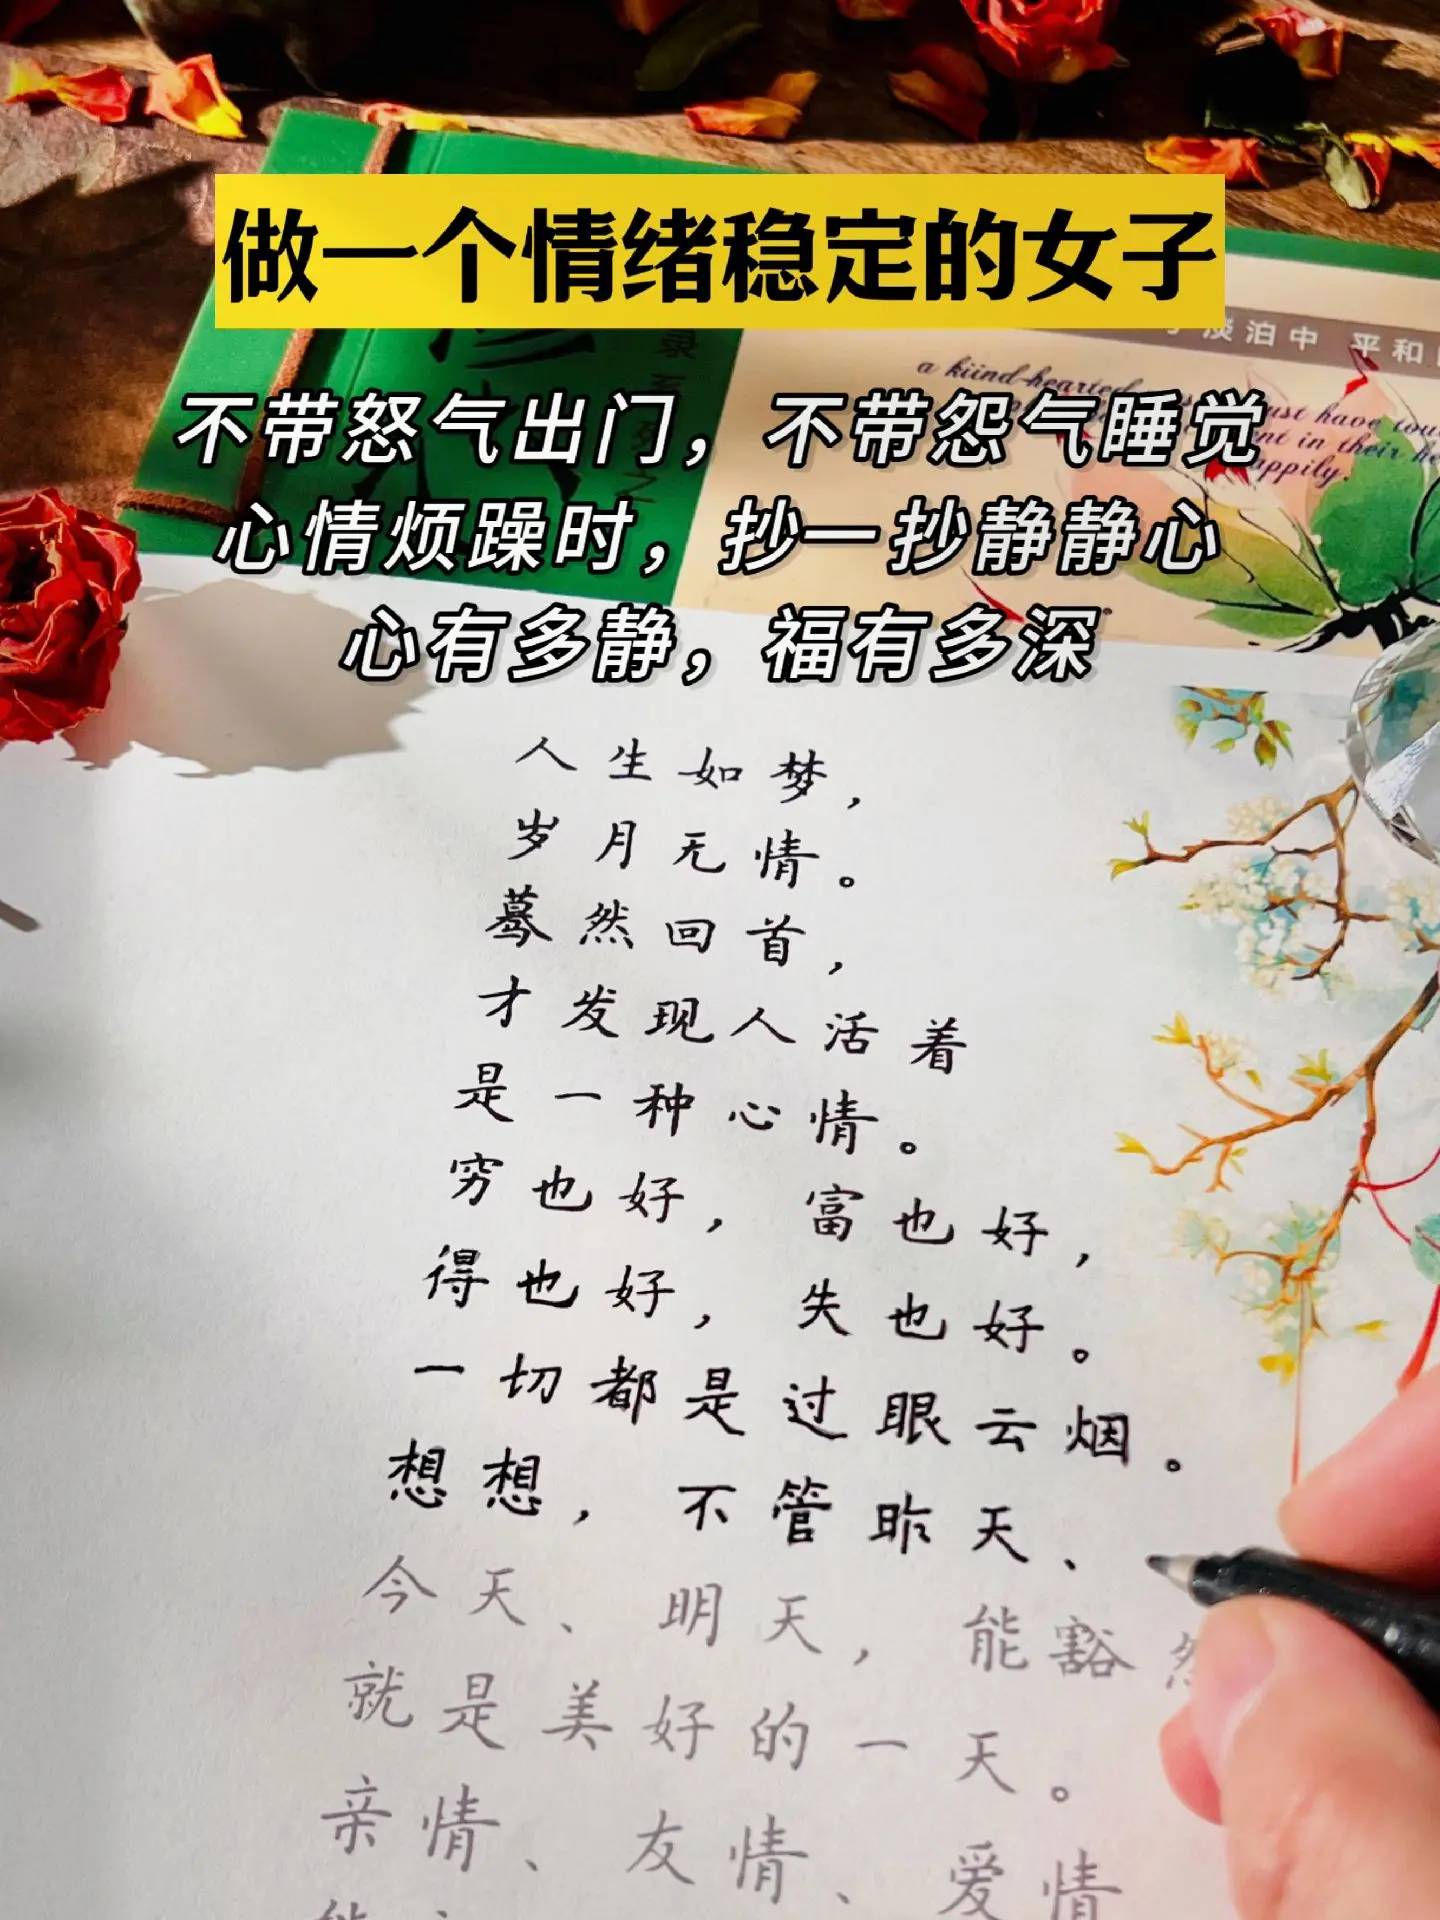 做一个情绪稳定的女子
淡泊中 平和
a kiind-hearted
不带怒气出门，不带怨气睡觉
心情烦躁时，抄一抄静静心
心有多静，福有多深
人生如梦，
岁月无情。
蓦然回首，
才发现人活着
是一种心情。
穷也好，富也好，
得也好，失也好。
一切都是过眼云烟。
想想，不管昨天、
今天、明天，能豁然
就是美好的一天。
亲情、友情、爱情